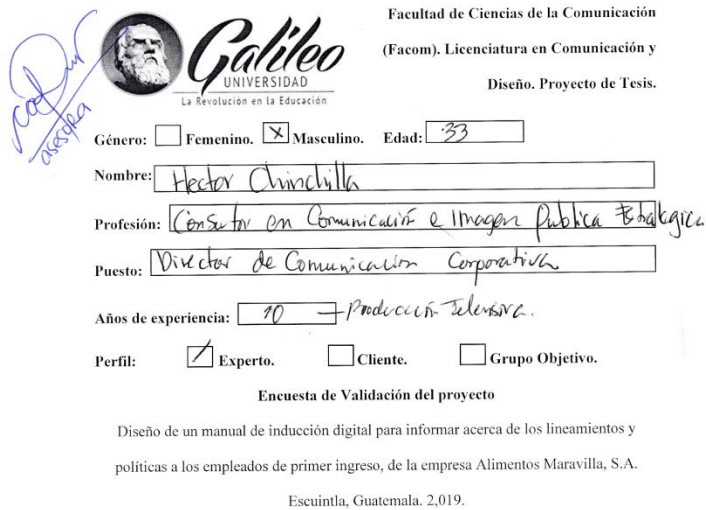 Facultad de Ciencias de la Comunicación
(Facom). Licenciatura en Comunicación y
Diseño. Proyecto de Tesis.
Galileo
UNIVERSIDAD
La Revolución en la Educación
asesora
Género: Femenino. X Masculino. Edad: 33
Nombre: Hector Chinchilla
Profesión: Consultor en Comunicación e Imagen Publica Estrategica
Puesto: Director de Comunicación Corporativa
Años de experiencia: 10 — Producción Televisiva.
Perfil: Experto. Cliente. Grupo Objetivo.
Encuesta de Validación del proyecto
Diseño de un manual de inducción digital para informar acerca de los lineamientos y
políticas a los empleados de primer ingreso, de la empresa Alimentos Maravilla, S.A.
Escuintla, Guatemala. 2,019.